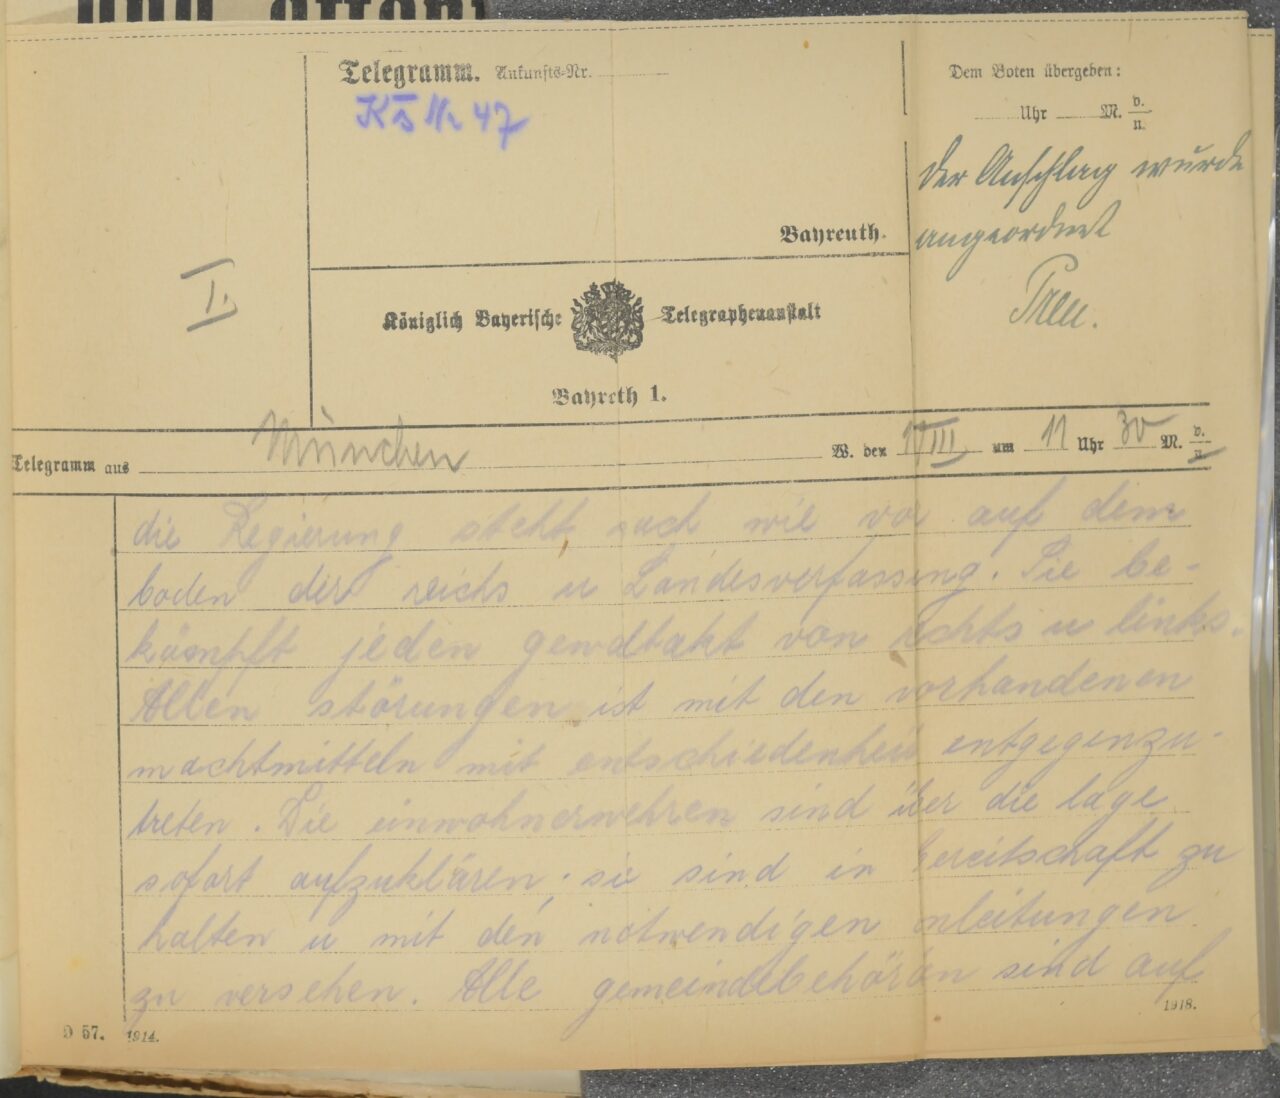 Telegramm. Ankunfts-Nr.
Nr 47
Dem Boten übergeben:
Uhr M. v.
n.
der Anschlag wurde
angeordnet
Bayreuth.
I.
Königlich Bayerische Telegraphenanstalt
Bayreth 1.
Telegramm aus München W. den III um 11 Uhr 30 M. v.
n.
die Regierung steht nach wie vor auf dem
boden der reichs u Landesverfassung. Sie be-
kämpft jeden gewaltakt von rechts u links.
Allen störungen ist mit den vorhandenen
machtmitteln mit entschiedenheit entgegenzu-
treten. Die einwohnerwehren sind über die lage
sofort aufzuklären; sie sind in bereitschaft zu
halten u mit den notwendigen anleitungen
zu versehen. Alle gemeindebehörden sind auf
D 57. 1914.
1918.